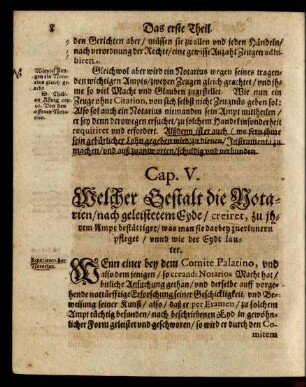 8 Das erste Theil
den Gerichten aber / müssen sie zu allen und jeden Händeln /
nach verordnung der Rechte / eine gewisse Anzahl Zeugen adhi-
biren.
Gleichwol aber wird ein Notarius wegen seines tragen-
den wichtigen Ampts / zweyen Zeugen gleich geachtet / und ihr
me so viel Macht und Glauben zugestellet. Wie nun ein
Zeuge ohne Citation, von sich selbst nicht Zeugnüs geben sol:
Also sol auch ein Notarius niemanden sein Ampt mittheilen /
er sey denn derowegen ersuchet / zu solchem Handel insonderheit
requiriret und erfordert. Alßdenn ist er auch / wo fern ihme
sein gebürlicher Lohn gegeben wird / zu dienen / Instrumenta zu
machen / und auß zuantworten / schuldig und verbunden.
Cap. V.
Welcher Gestalt die Nota-
rien / nach geleistetem Eyde / creiret, zu ih-
rem Ampt bestättiget / was man sie darbey zuerinnern
pfleget / vnnd wie der Eydt lau-
ter.
Notarien.
WEnn einer bey dem Comite Palatino, vnd
also dem jenigen / so creandi Notarios Macht hat /
bitliche Ansuchung gethan / und derselbe auff vorge-
hende notürfftige Erforschung seiner Geschickligkeit / und Be-
weisung seiner Kunst / also / daß er per Examen / zu solchem
Ampt tüchtig befunden / nach beschriebenen Eyd in gewöhn-
licher Form geleistet und geschworen / so wird er durch den Co-
mitem